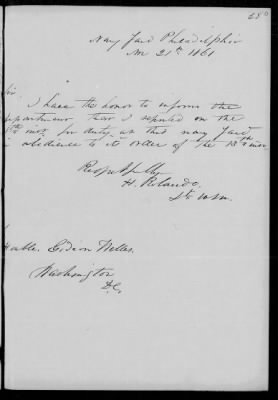 Navy Yard Philadelphia
Nov 21st 1861
Sir
I have the honor to inform the
partment that I reported on the
th inst. for duty at this navy yard
obedience to its order of the 13th inst
Respectfully
H. Rolando
Honble. Gideon Welles
Washington
D.C.